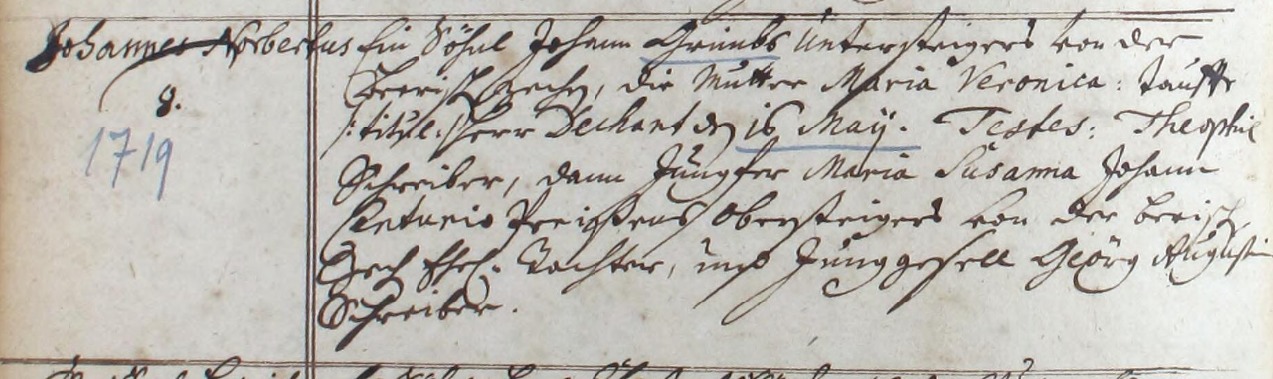 Johannes Norbertus
8.
1719
Ein Söhnl Johann Grimbs Untersteigers von der
Zech, die Mutter Maria Veronica: Tauffte
/:titul:/ Herr Dechant den 16 May. Testes: Theophil
Schreiber, dann Jungfer Maria Susanna Johann
Obersteigers von der
Zech Ehel: Tochter, und Junggesell Geörg Augustin
Schreiber.